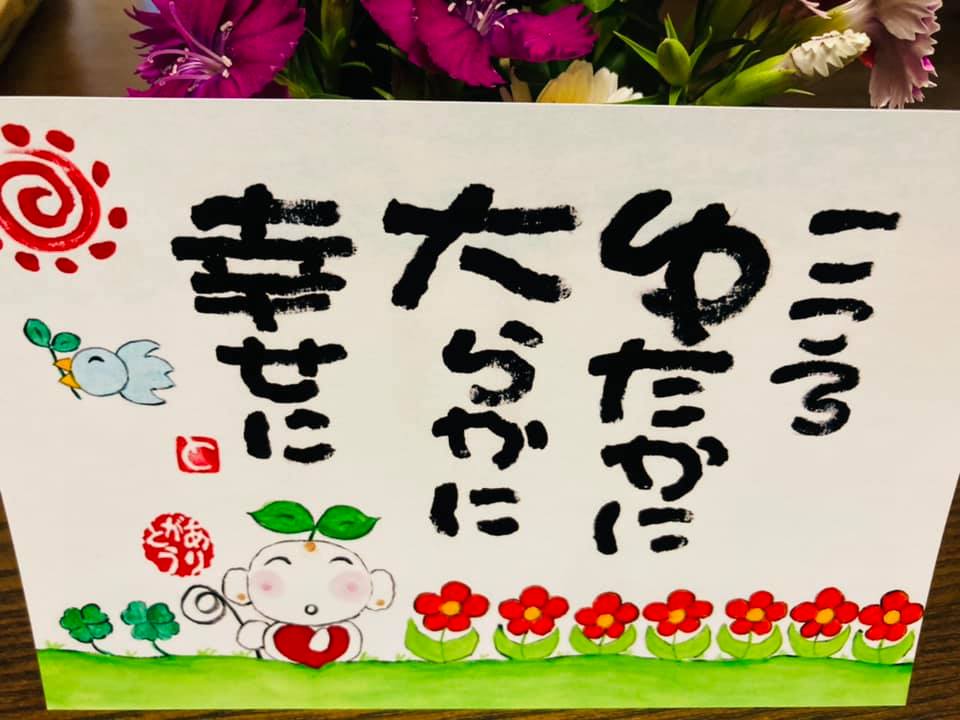 こころ
ゆたかに
大らかに
幸せに
と
ありがとう